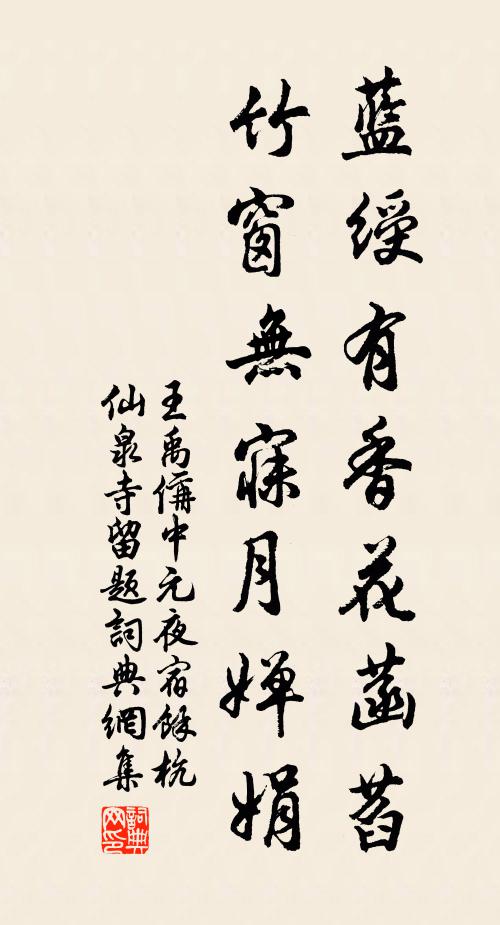 藍綬有香花菡萏
竹窗無寐月嬋娟
王禹偁中元夜宿餘杭
仙泉寺留題詞典網集
詞典網印